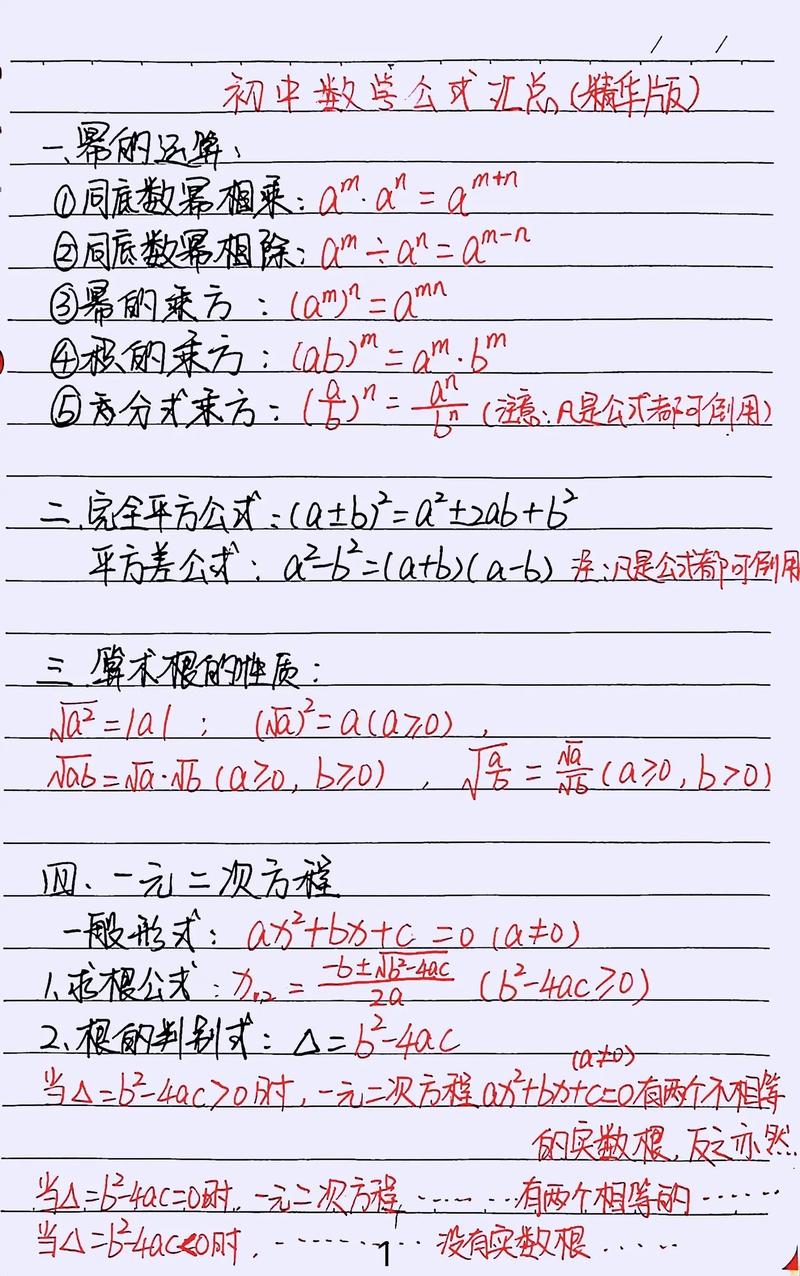 初中数学公式汇总(精华版)
一、幂的运算:
①同底数幂相乘: a^m · a^n = a^{m+n}
②同底数幂相除: a^m ÷ a^n = a^{m-n}
③幂的乘方: (a^m)^n = a^{mn}
④积的乘方: (ab)^m = a^m · b^m
⑤分式乘方: (a/b)^n = a^n/b^n (注意:凡是公式都可倒用)
二、完全平方公式: (a±b)² = a²±2ab+b²
平方差公式: a²-b²=(a+b)(a-b) 注:凡是公式都可倒用
三、算术根的性质:
√a² = |a| ; (√a)² = a (a≥0),
√ab = √a·√b (a≥0, b≥0), √(a/b) = √a/√b (a≥0, b>0)
四、一元二次方程
一般形式: ax²+bx+c=0 (a≠0)
1、求根公式: x₁,₂ = (-b±√(b²-4ac))/2a (b²-4ac≥0)
2、根的判别式: △=b²-4ac
(a≠0)
当△=b²-4ac>0时,一元二次方程ax²+bx+c=0有两个不相等
的实数根,反之亦然.
当△=b²-4ac=0时,一元二次方程……有两个相等的……
当△=b²-4ac<0时,……没有实数根……
1